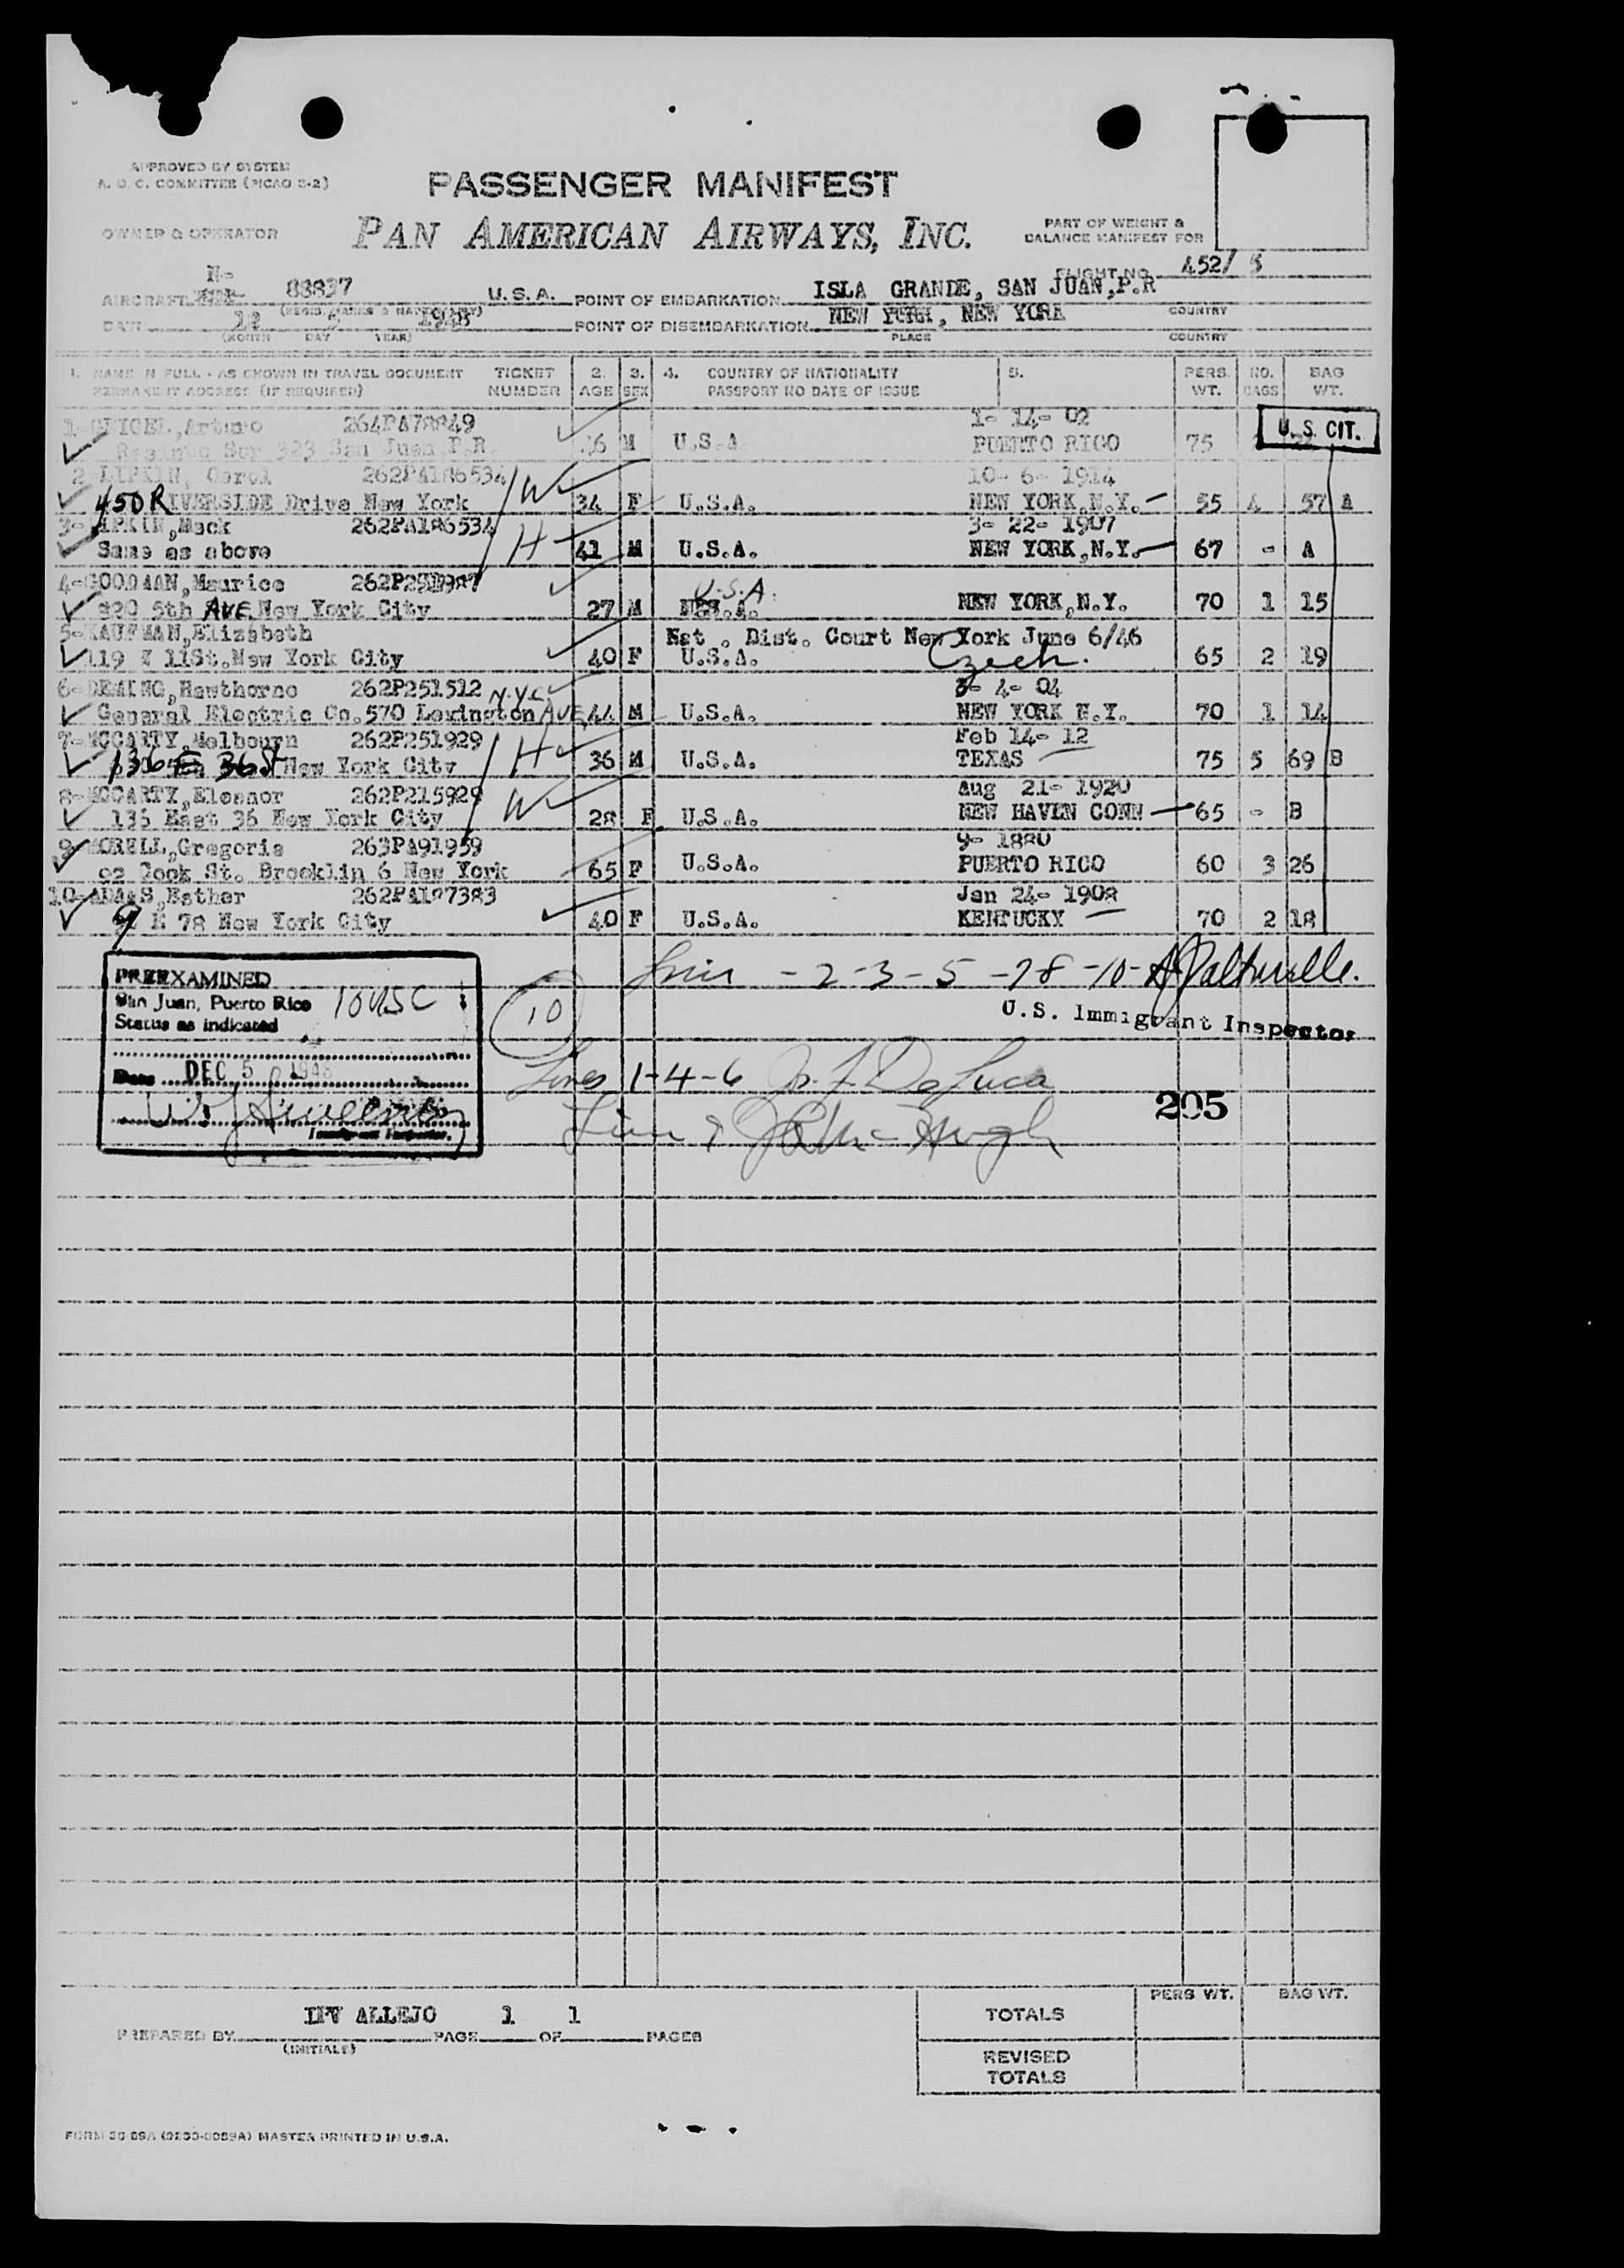 APPROVED BY SYSTEM
A. O. C. COMMITTEE (PICAO S-2)
PASSENGER MANIFEST
OWNER & OPERATOR
PAN AMERICAN AIRWAYS, INC.
PART OF WEIGHT &
BALANCE MANIFEST FOR
FLIGHT NO. 452/ 5
N-
AIRCRAFT 88837 U.S.A. POINT OF EMBARKATION ISLA GRANDE, SAN JUAN,P.R
(REGIS. MARKS & NATIONALITY) COUNTRY
DATE 12 5 1948 POINT OF DISEMBARKATION NEW YORK, NEW YORK
(MONTH DAY YEAR) PLACE COUNTRY
1. NAME IN FULL - AS SHOWN IN TRAVEL DOCUMENT TICKET 2. 3. 4. COUNTRY OF NATIONALITY 5. PERS. NO. BAG
PERMANENT ADDRESS (IF REQUIRED) NUMBER AGE SEX PASSPORT NO DATE OF ISSUE WT. BAGS WT.
1- Arturo 264PA78849 1- 14- 02
Sur 323 San Juan P.R. 46 M U.S.A PUERTO RICO 75 U.S. CIT.
2 LIPKIN, Carol 262PA186534 W 10- 6- 1914
450 RIVERSIDE Drive New York 34 F U.S.A. NEW YORK,N.Y. 55 4 57 A
3- LIPKIN,Mack 262PA186534 H 3- 22- 1907
Same as above 41 M U.S.A. NEW YORK,N.Y. 67 - A
4-GOODMAN,Maurice U.S.A.
820 5th AVE New York City 27 M NEW YORK,N.Y. 70 1 15
5-KAUFMAN,Elizabeth Nat . Dist. Court New York June 6/46
119 E 11St.New York City 40 F U.S.A. Czech. 65 2 19
6-DEMING,Hawthorne 262P251512 N.Y.C. 3- 4- 04
General Electric Co.570 Lexington AVE 44 M U.S.A. NEW YORK N.Y. 70 1 14
7-MCCARTY,Melbourn 262P251929 H Feb 14- 12
136 E 36 St New York City 36 M U.S.A. TEXAS 75 5 69 B
8-MCCARTY,Eleanor 262P215929 W Aug 21- 1920
136 East 36 New York City 28 F U.S.A. NEW HAVEN CONN 65 - B
9-MORELL,Gregoria 263PA91959 9- 1880
92 Cook St. Brooklin 6 New York 65 F U.S.A. PUERTO RICO 60 3 26
10-ADAMS,Esther 262PA187383 Jan 24- 1908
9 E 78 New York City 40 F U.S.A. KENTUCKY 70 2 18
- 2 - 3 - 5 - 7 8 - 10 -
U.S. Immigrant Inspector
PREEXAMINED
San Juan, Puerto Rico 10 USC
Status as indicated
10
Date DEC 5 1948
Immigrant Inspector.
Lines 1-4-6 De Luca
205
Line 9
IFV ALLEJO 1 1
PREPARED BY PAGE OF PAGES
(INITIALS)
PERS WT. BAG WT.
TOTALS
REVISED
TOTALS
MASTER PRINTED IN U.S.A.